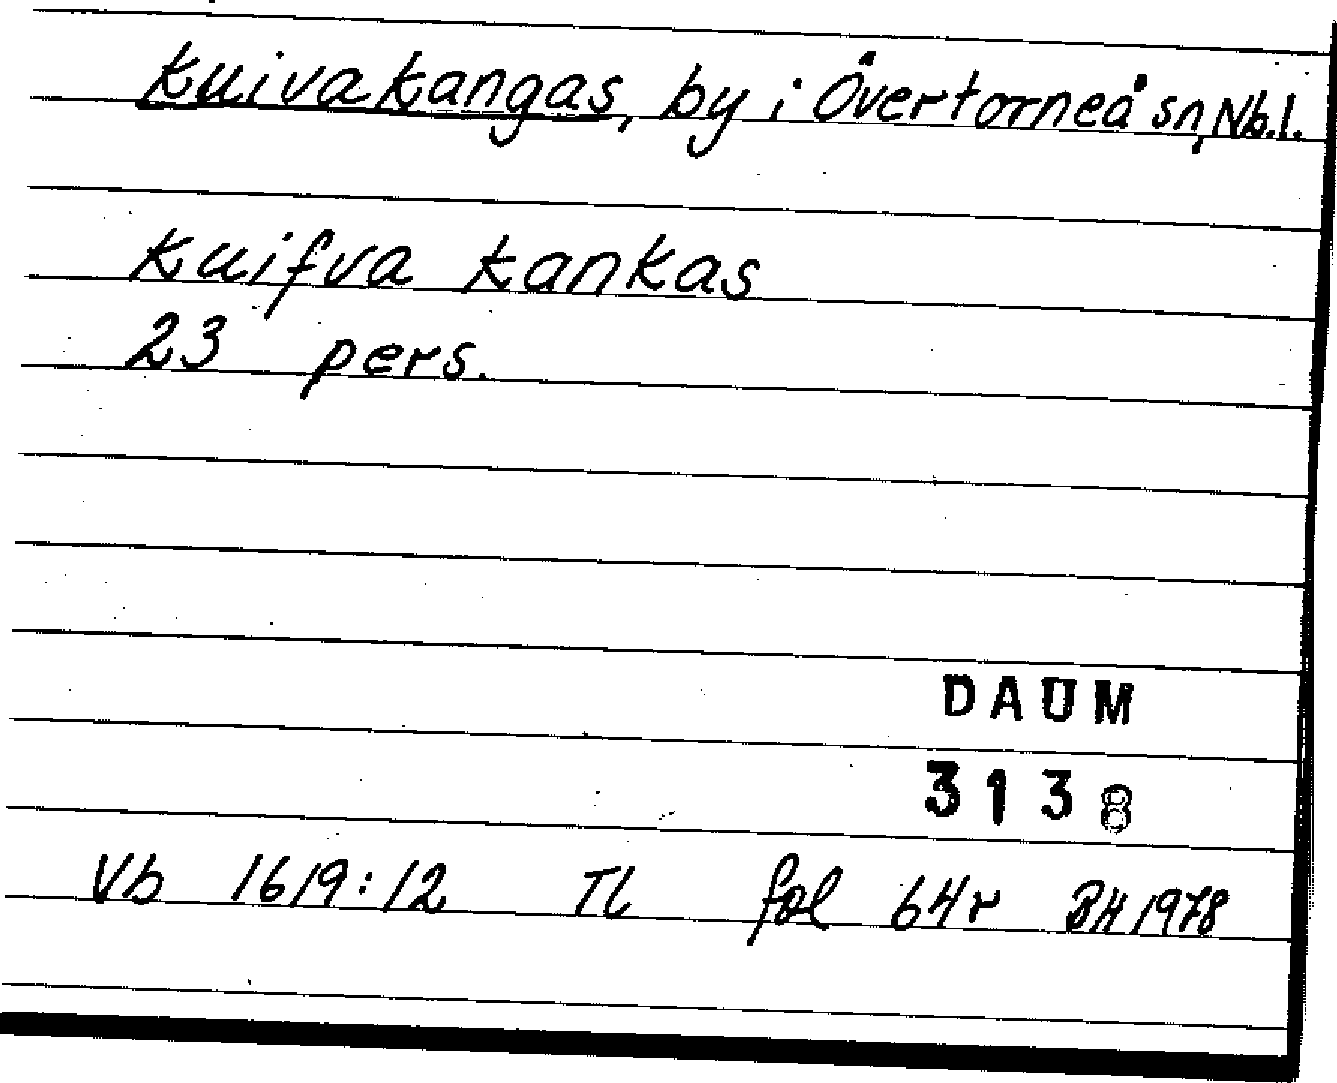 Kuivakangas, by i Övertorneå sn, Nb.l.
Kuifva kankas
23 pers.
DAUM
3138
Vb 1619:12 TL fol 64r BH 1978